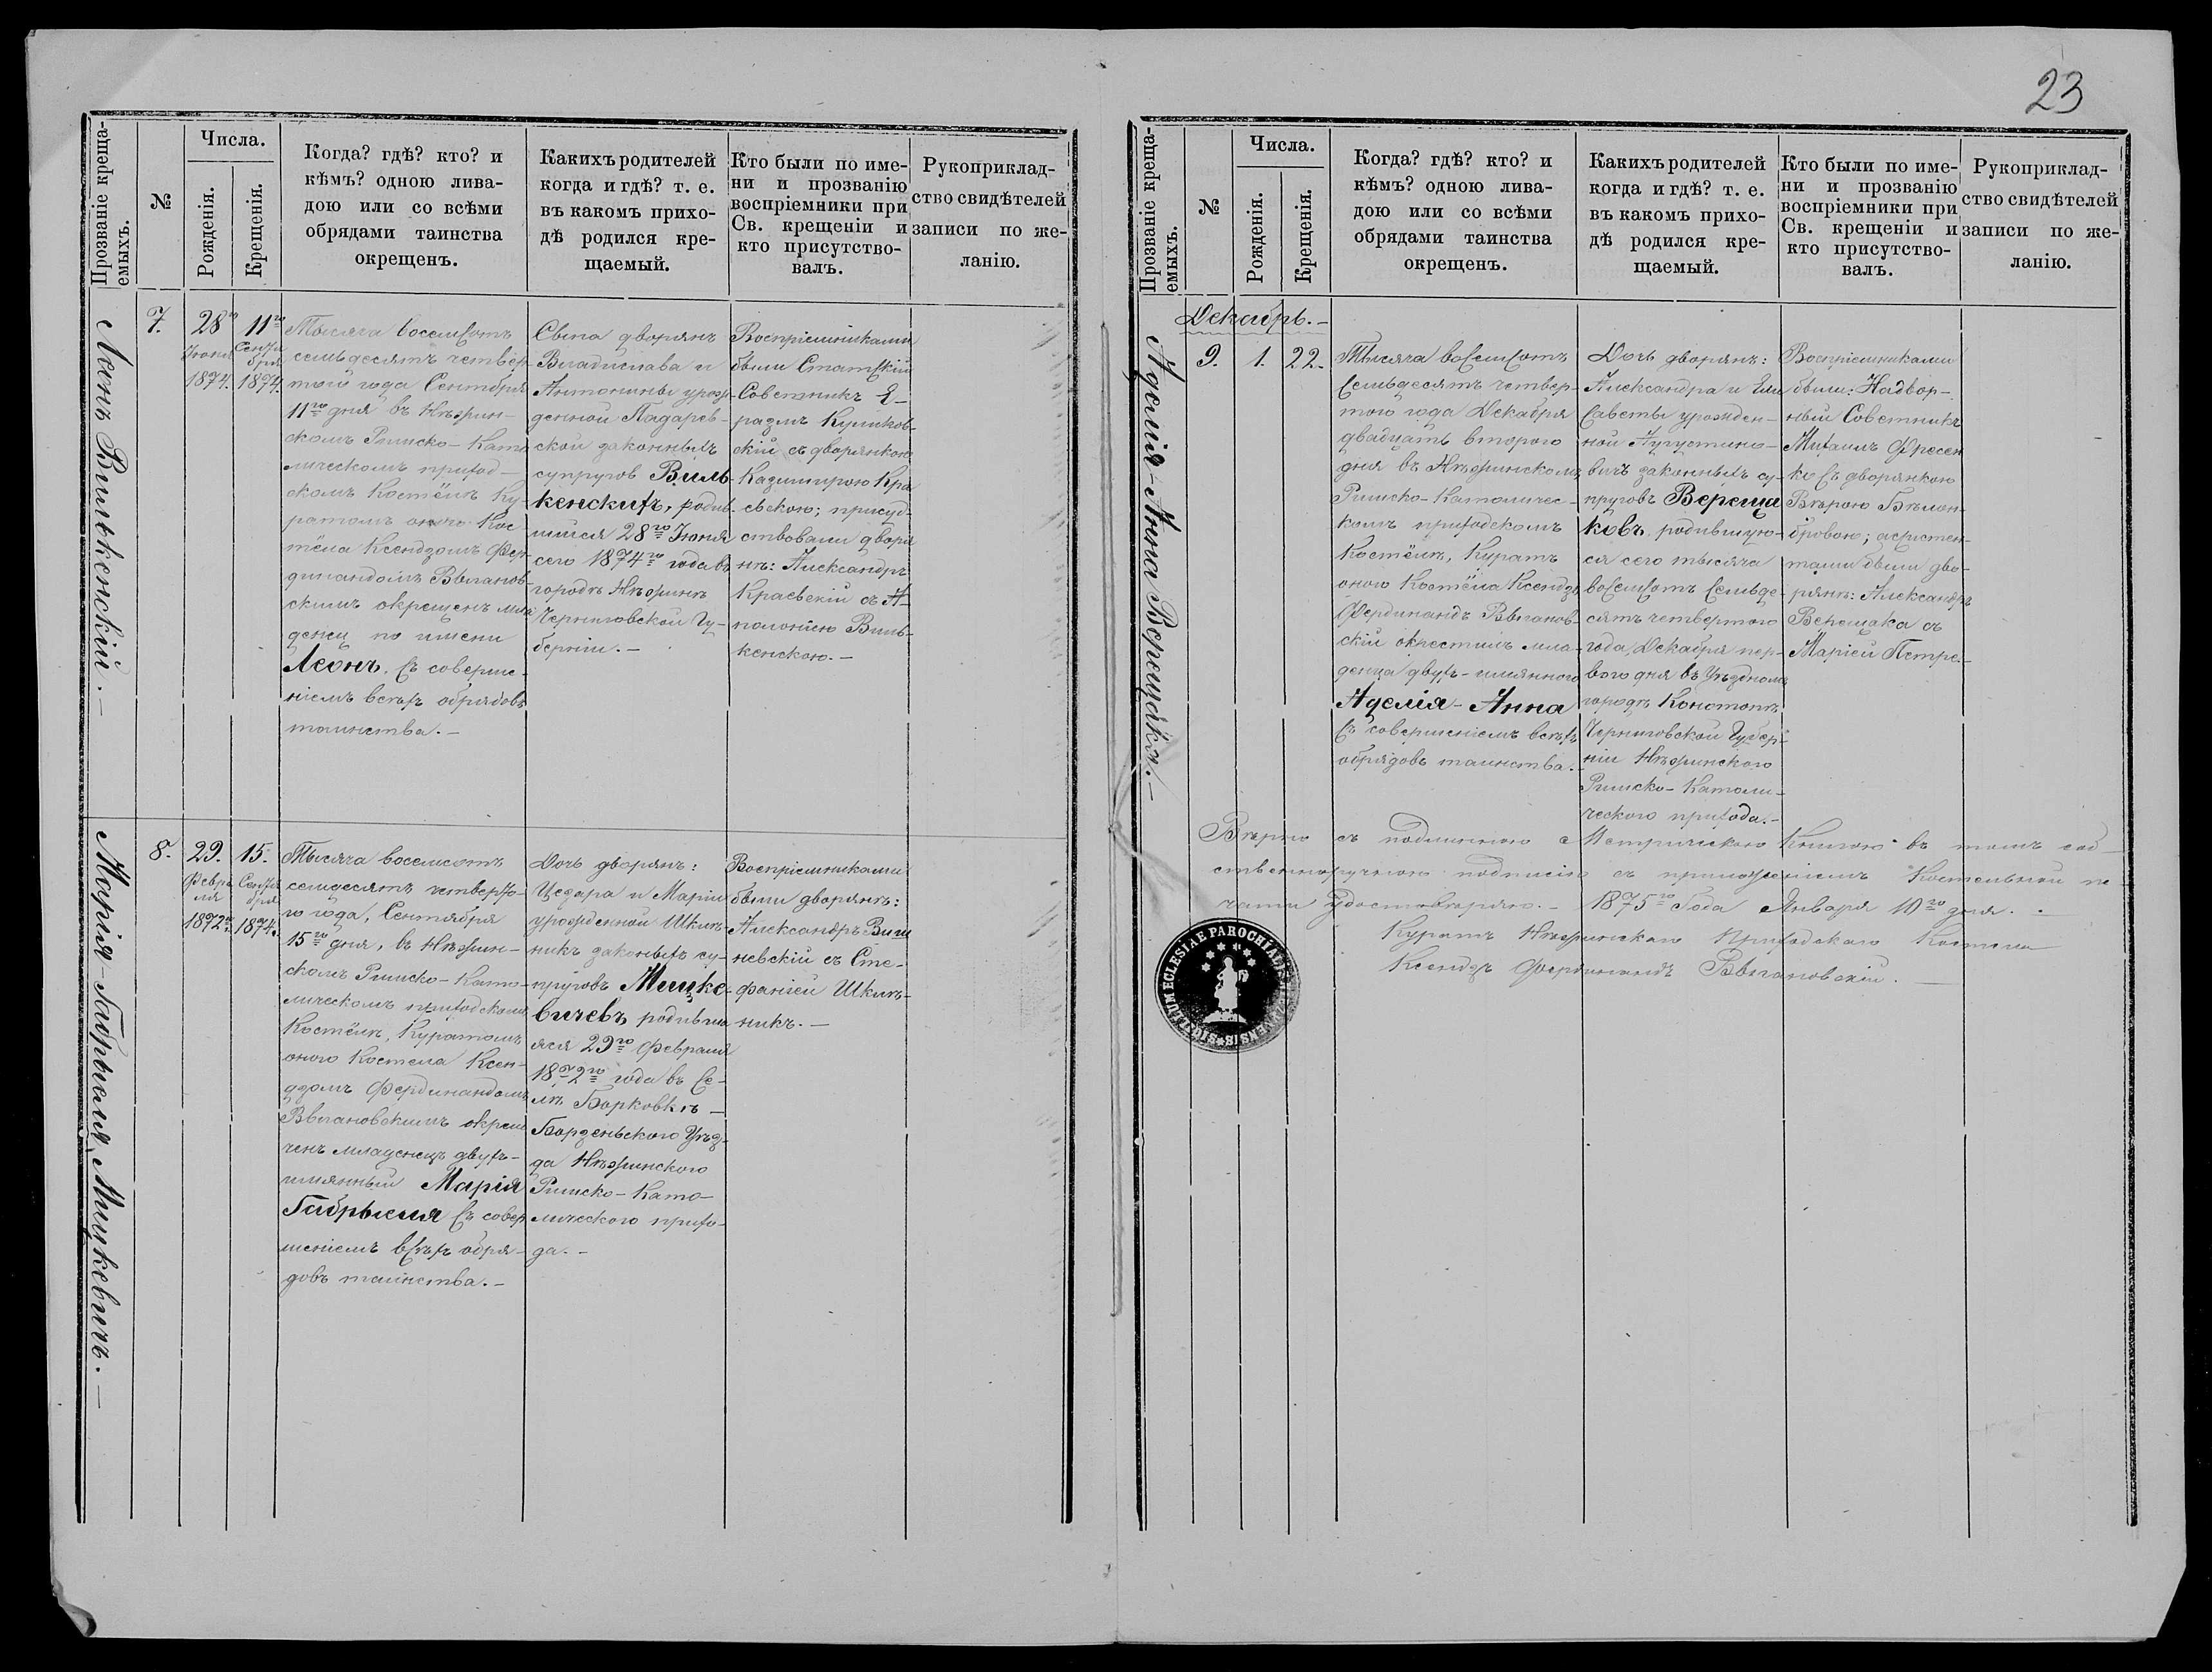 23
Прозваніе креща-
емыхъ.
№
Числа.
Рожденія.
Крещенія.
Когда? гдѣ? кто? и
кѣмъ? одною лива-
дою или со всѣми
обрядами таинства
окрещенъ.
Какихъ родителей
когда и гдѣ? т. е.
въ какомъ прихо-
дѣ родился кре-
щаемый.
Кто были по име-
ни и прозванію
воспріемники при
Св. крещеніи и
кто присутство-
валъ.
Рукоприклад-
ство свидѣтелей
записи по же-
ланію.
Леонъ Вилькенскій. —
7.
28го
Іюня
1874.
11го
Сентя
бря
1874.
Тысяча восемсотъ
семьдесятъ четвер-
того года Сентября
11го дня въ Нѣжин-
скомъ Римско-Като
лическомъ приход-
скомъ Костёлѣ Ку-
ратомъ онаго Кос-
тёла Ксендзомъ Фер-
динандомъ Выганов-
скимъ окрещенъ мла
денец по имени
Леонъ, съ соверше-
ніемъ всѣхъ обрядовъ
таинства. —
Сына дворянъ
Владислава и
Антонины урож-
денной Падарев-
ской законныхъ
супругов Виль-
кенскихъ, родив-
шійся 28го Іюня
сего 1874го года въ
городѣ Нѣжинѣ
Черниговской Гу-
берніи. —
Воспріемниками
были Статскій
Советникъ Е-
размъ Куликов-
скій съ дворянкою
Казимирою Кра
евскою; присуд-
ствовали дворя
нѣ: Александръ
Краевскій съ А-
полоніею Виль-
кенскою. —
Марія-Габрыеля Мицкевичъ. —
8.
29.
Февра
ля
1872го
15.
Сентя
бря
1874.
Тысяча восемсотъ
семдесятъ четверто-
го года, Сентября
15го дня, въ Нѣжин-
скомъ Римско-Като-
лическомъ приходскомъ
Костёлѣ, Куратомъ
оного Костела Ксен-
дзомъ Фердинандомъ
Выгановскимъ окрещ
ченъ младенецъ двух-
имянный Марія
Габрыеля съ совер
шеніемъ всѣхъ обря-
довъ таинства. —
Дочь дворянъ:
Цезара и Маріи
урожденной Шкиль-
никъ законыхъ су-
пруговъ Мицке-
вичевъ, родивша
яся 29го Февраля
1872го года въ Се-
лѣ Борковкѣ —
Борзеньского Уѣз-
да Нѣжинского
Римско-Като-
лического прихо-
да. —
Воспріемниками
были дворянѣ:
Александръ Виш
невскій съ Сте-
фаніей Шкиль-
никъ. —
Прозваніе креща-
емыхъ.
№
Числа.
Рожденія.
Крещенія.
Когда? гдѣ? кто? и
кѣмъ? одною лива-
дою или со всѣми
обрядами таинства
окрещенъ.
Какихъ родителей
когда и гдѣ? т. е.
въ какомъ прихо-
дѣ родился кре-
щаемый.
Кто были по име-
ни и прозванію
воспріемники при
Св. крещеніи и
кто присутство-
валъ.
Рукоприклад-
ство свидѣтелей
записи по же-
ланію.
Аделія-Анна Верещака. —
Декабрь. —
9.
1.
22.
Тысяча восемсотъ
семьдесятъ четвер-
того года Декабря
двадцать второго
дня въ Нѣжинскомъ
Римско-Католичес-
комъ приходскомъ
Костёлѣ, Куратъ
оного Костёла Ксендзъ
Фердинандъ Выганов-
скій окрестилъ мла-
денца двухъ-имянного
Аделія-Анна
съ совершеніемъ всѣхъ
обрядовъ таинства. —
Дочь дворянъ:
Александра и Ели
саветы урожден-
ной Аугустино-
вичъ законныхъ су-
пруговъ Вереща
ковъ родившую-
ся сего тысяча
восемсотъ семьде-
сятъ четвертого
года, Декабря пер-
вого дня въ Уѣздномъ
городѣ Конотопѣ
Черниговской Губер-
ніи Нѣжинского
Римско-Католи-
ческого прихода. —
Воспріемниками
были: Надвор-
ный Советникъ
Михаилъ Фресен
ко съ дворянкою
Вѣрою Бѣлон-
бровою; асистен-
тами были дво-
рянѣ: Александръ
Верещака съ
Маріей Петре. —
Вѣрно съ подлинною Метрическою Книгою въ томъ соб-
ственноручною подписію съ приложеніемъ Костельной пе-
чати удостовѣряю. — 1875го Года Января 10го дня. —
Куратъ Нѣжинскаго Приходскаго Костела
Ксендзъ Фердинандъ Выгановскій. —
SIGILLUM ECLESIAE PAROCHIALIS